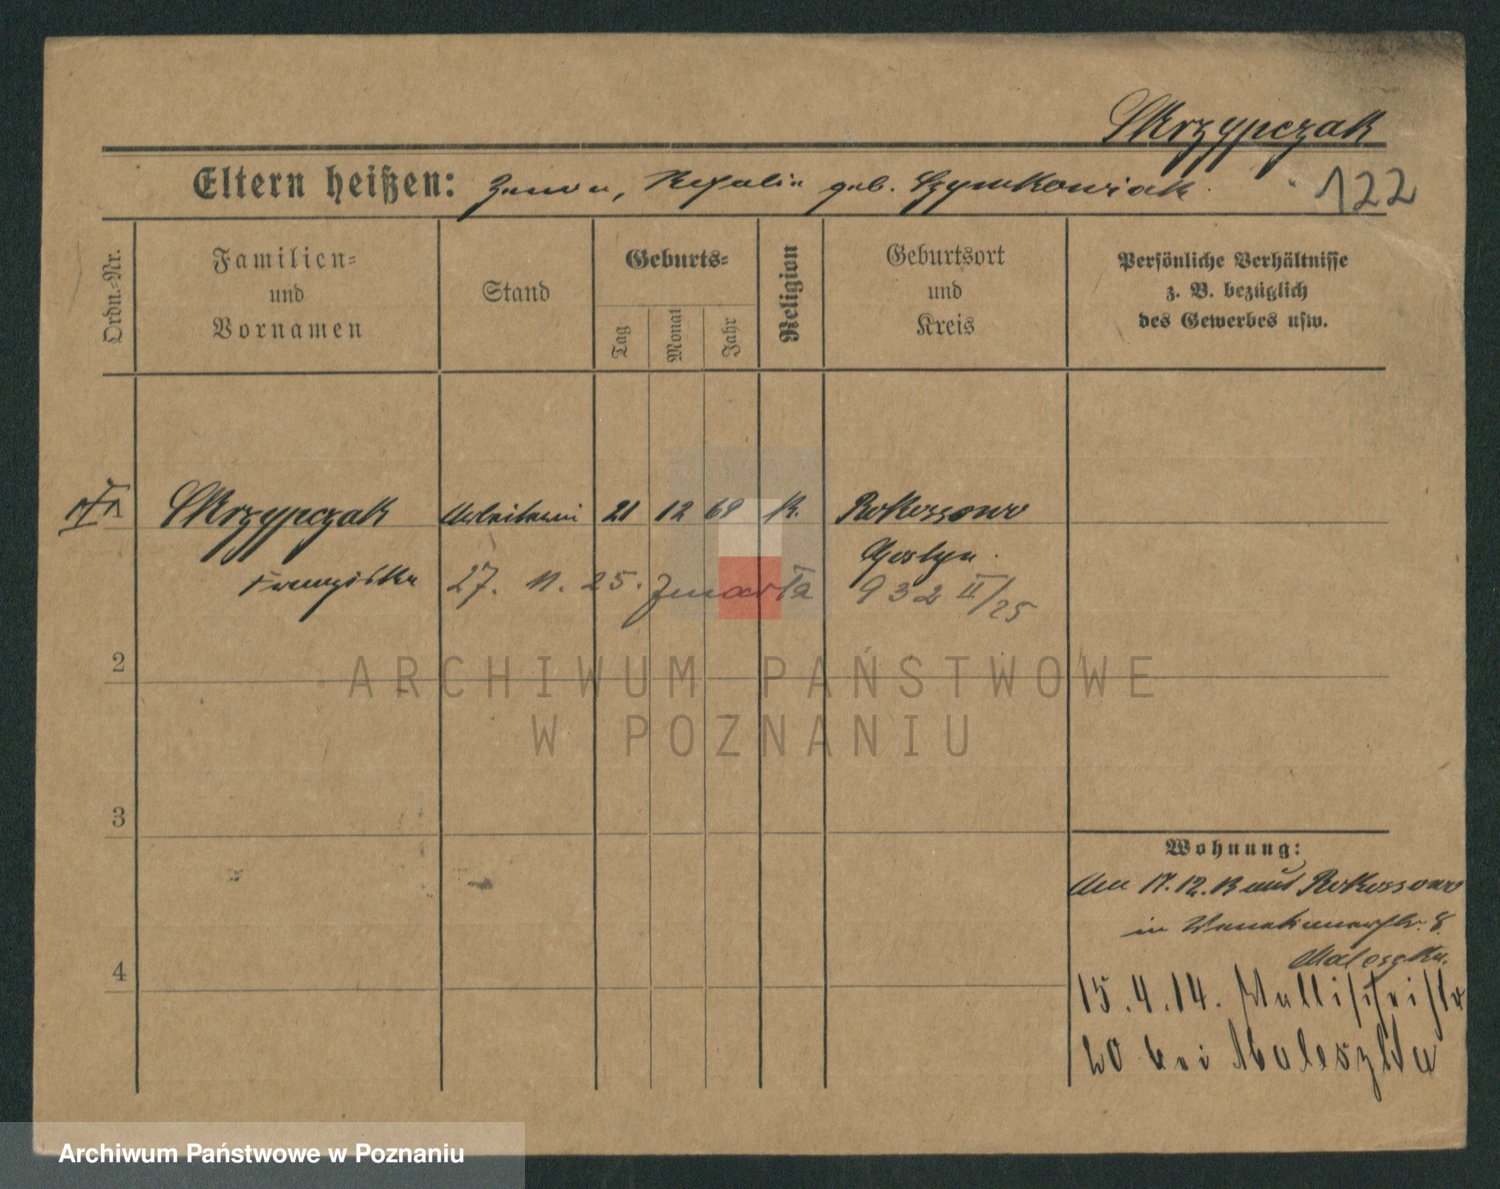 Skrzypczak
Eltern heißen: geb. Szymkowiak
122
Ordn.-Nr.
Familien-
und
Vornamen
Stand
Geburts-
Tag
Monat
Jahr
Religion
Geburtsort
und
Kreis
Persönliche Verhältnisse
z. B. bezüglich
des Gewerbes usw.
Skrzypczak Arbeiterin 21 12 69 k. Rokossowo
Gostyn
Franziska 27. 11. 25. zmarła 932 II/25
2
ARCHIWUM PAŃSTWOWE
W POZNANIU
3
Wohnung:
17. 12. 13 aus Rokossowo
in 8.
Maloszka
4
15. 4. 14. Wallischeistr
20 bei Maleszka
Archiwum Państwowe w Poznaniu